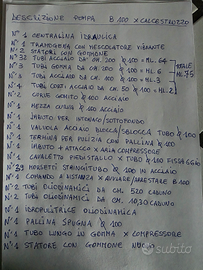 DESCRIZIONE POMPA B 100 X CALCESTRUZZO
N° 1 CENTRALINA IDRAULICA
N° 1 TRAMOGGIA CON MESCOLATORE VIBRANTE
N° 2 STATORI CON GOMMONE
N° 32 TUBI ACCIAIO DA CM. 200 Ø 100 = ML. 64
N° 3 TUBI GOMMA DA CM. Ø 100 = ML. 6
N° TUBI ACCIAIO DA CM. 100 Ø 100 = ML. 3
N° 4 TUBI CORTI ACCIAIO DA CM. 50 Ø 100 = ML. 2
TOTALE ML. 75
N° 2 CURVE GOMITO Ø 100 ACCIAIO
N° 1 MEZZA CURVA Ø 100 ACCIAIO
N° 1 IMBUTO PER INTONACO/SOTTOFONDO
N° 1 VALVOLA ACCIAIO BLOCCA/SBLOCCA TUBO Ø 100
N° 1 TERMINALE PER PULIZIA CON PALLINA Ø 100
N° 1 IMBUTO + ATTACCO X ARIA COMPRESSORE
N° 1 CAVALLETTO PIEDISTALLO X TUBO Ø 100 FISSAGGIO
N° 39 MORSETTI STRINGITUBO Ø 100 IN ACCIAIO
N° 1 COMANDO A DISTANZA X AVVIARE/ARRESTARE B 100
N° 2 TUBI OLIODINAMICI DA CM. 520 CADUNO
N° 2 TUBI OLIODINAMICI DA CM. 1030 CADUNO
N° 1 IDROPULITRICE OLIODINAMICA
N° 1 PALLINA SPUGNA Ø 100
N° 1 TUBO LUNGO IN GOMMA X COMPRESSORE
N° 1 STATORE CON GOMMONE NUOVO
Subito